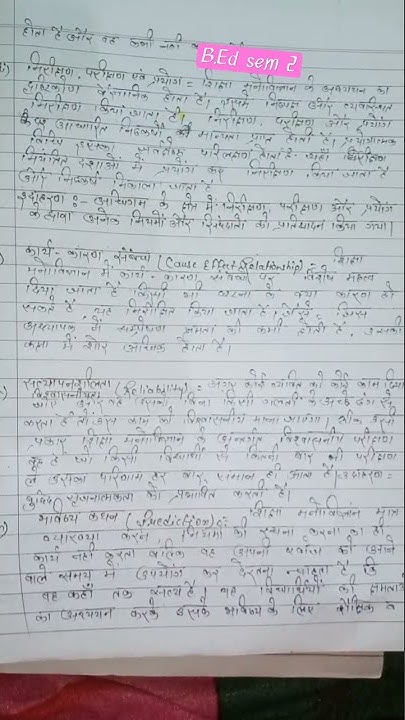 होता है और वह कभी नहीं
B.Ed sem 2
निरीक्षण, परीक्षण एवं प्रयोग = शिक्षा मनोविज्ञान के अध्ययन का
दृष्टिकोण वैज्ञानिक होता है। इसमें निष्पक्ष और व्यवस्थित
निरीक्षण किया जाता है। निरीक्षण, परीक्षण और प्रयोग
के आधारित निष्कर्षों को मान्यता प्राप्त होती है। प्रयोगात्मक
विधि इसका सर्वश्रेष्ठ परिलक्षण होता है। जहाँ
नियंत्रित दशाओं में प्रयोग कर निरीक्षण किया जाता है
और निष्कर्ष निकाला जाता है
उदाहरण :- अधिगम के क्षेत्र में निरीक्षण, परीक्षण और प्रयोग
के द्वारा अनेक नियमों और सिद्धांतों का प्रतिपादन किया गया।
कार्य-कारण संबंध (Cause Effect Relationship) = शिक्षा
मनोविज्ञान में कार्य-कारण संबंधों पर विशेष महत्व
दिया जाता है किसी भी घटना के क्या कारण हो
सकते हैं, यह निर्धारित किया जाता है, जैसे, जिस
अध्यापक में सम्प्रेषण क्षमता की कमी होती है, उसकी
कक्षा में शोर अधिक होता है।
(Reliability) = अगर कोई व्यक्ति को कोई काम दिया
विश्वसनीयता जाए और वह उसको बिना किसी गलती के अच्छे ढंग से
करता है तो उस काम को विश्वसनीय माना जाएगा ठीक उसी
प्रकार शिक्षा मनोविज्ञान के अन्तर्गत विश्वसनीय परीक्षण
वह है जो किसी विद्यार्थी से कितनी बार भी परीक्षण
ले उसका परिणाम हर बार समान ही आता है। उदाहरण=
बुद्धि सृजनात्मकता को प्रभावित करती है।
भविष्य कथन (Prediction) : शिक्षा मनोविज्ञान मात्र
व्याख्या करने, नियमों की रचना करना का ही
कार्य नहीं करता बल्कि वह अपनी खोज को आने
वाले समय में उपयोग कर देखना चाहता है कि
वह कहाँ तक सत्य है। वह विद्यार्थियों की क्षमताओं
का अध्ययन करके उसके भविष्य के लिए शैक्षिक व